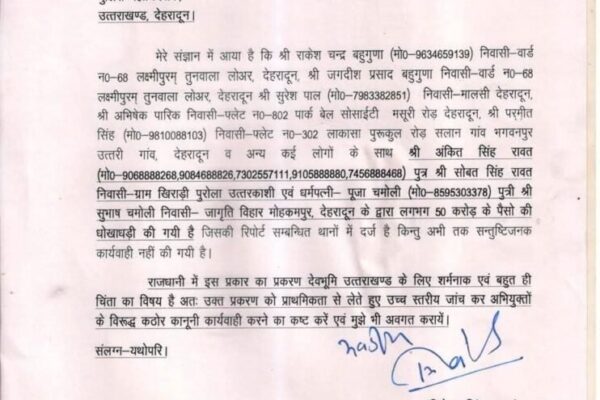 उत्तराखण्ड, देहरादून।
मेरे संज्ञान में आया है कि श्री राकेश चन्द्र बहुगुणा (मो०-9634659139) निवासी-वार्ड
न०-68 लक्ष्मीपुरम् तुनवाला लोअर, देहरादून, श्री जगदीश प्रसाद बहुगुणा निवासी-वार्ड न०-68
लक्ष्मीपुरम् तुनवाला लोअर, देहरादून श्री सुरेश पाल (मो०-7983382851) निवासी-मालसी देहरादून,
श्री अभिषेक पारिक निवासी-फ्लेट न०-802 पार्क बेल सोसाईटी मसूरी रोड़ देहरादून, श्री परमीत
सिंह (मो०-9810088103) निवासी-फ्लेट न०-302 लाकासा पुरूकुल रोड़ सलान गांव भगवनपुर
उत्तरी गांव, देहरादून व अन्य कई लोगों के साथ श्री अंकित सिंह रावत
(मो०-9068888268,9084688826,7302557111,9105888880,7456888468) पुत्र श्री सोबत सिंह रावत
निवासी-ग्राम खिराड़ी पुरोला उत्तरकाशी एवं धर्मपत्नी- पूजा चमोली (मो०-8595303378) पुत्री श्री
सुभाष चमोली निवासी- जागृति विहार मोहकमपुर, देहरादून के द्वारा लगभग 50 करोड़ के पैसो की
धोखाधड़ी की गयी है जिसकी रिपोर्ट सम्बन्धित थानों में दर्ज है किन्तु अभी तक सन्तुष्टिजनक
कार्यवाही नहीं की गयी है।
राजधानी में इस प्रकार का प्रकरण देवभूमि उत्तराखण्ड के लिए शर्मनाक एवं बहुत ही
चिंता का विषय है अतः उक्त प्रकरण को प्राथमिकता से लेते हुए उच्च स्तरीय जांच कर अभियुक्तों
के विरूद्ध कठोर कानूनी कार्यवाही करने का कष्ट करें एवं मुझे भी अवगत करायें।
संलग्न-यथोपरि।